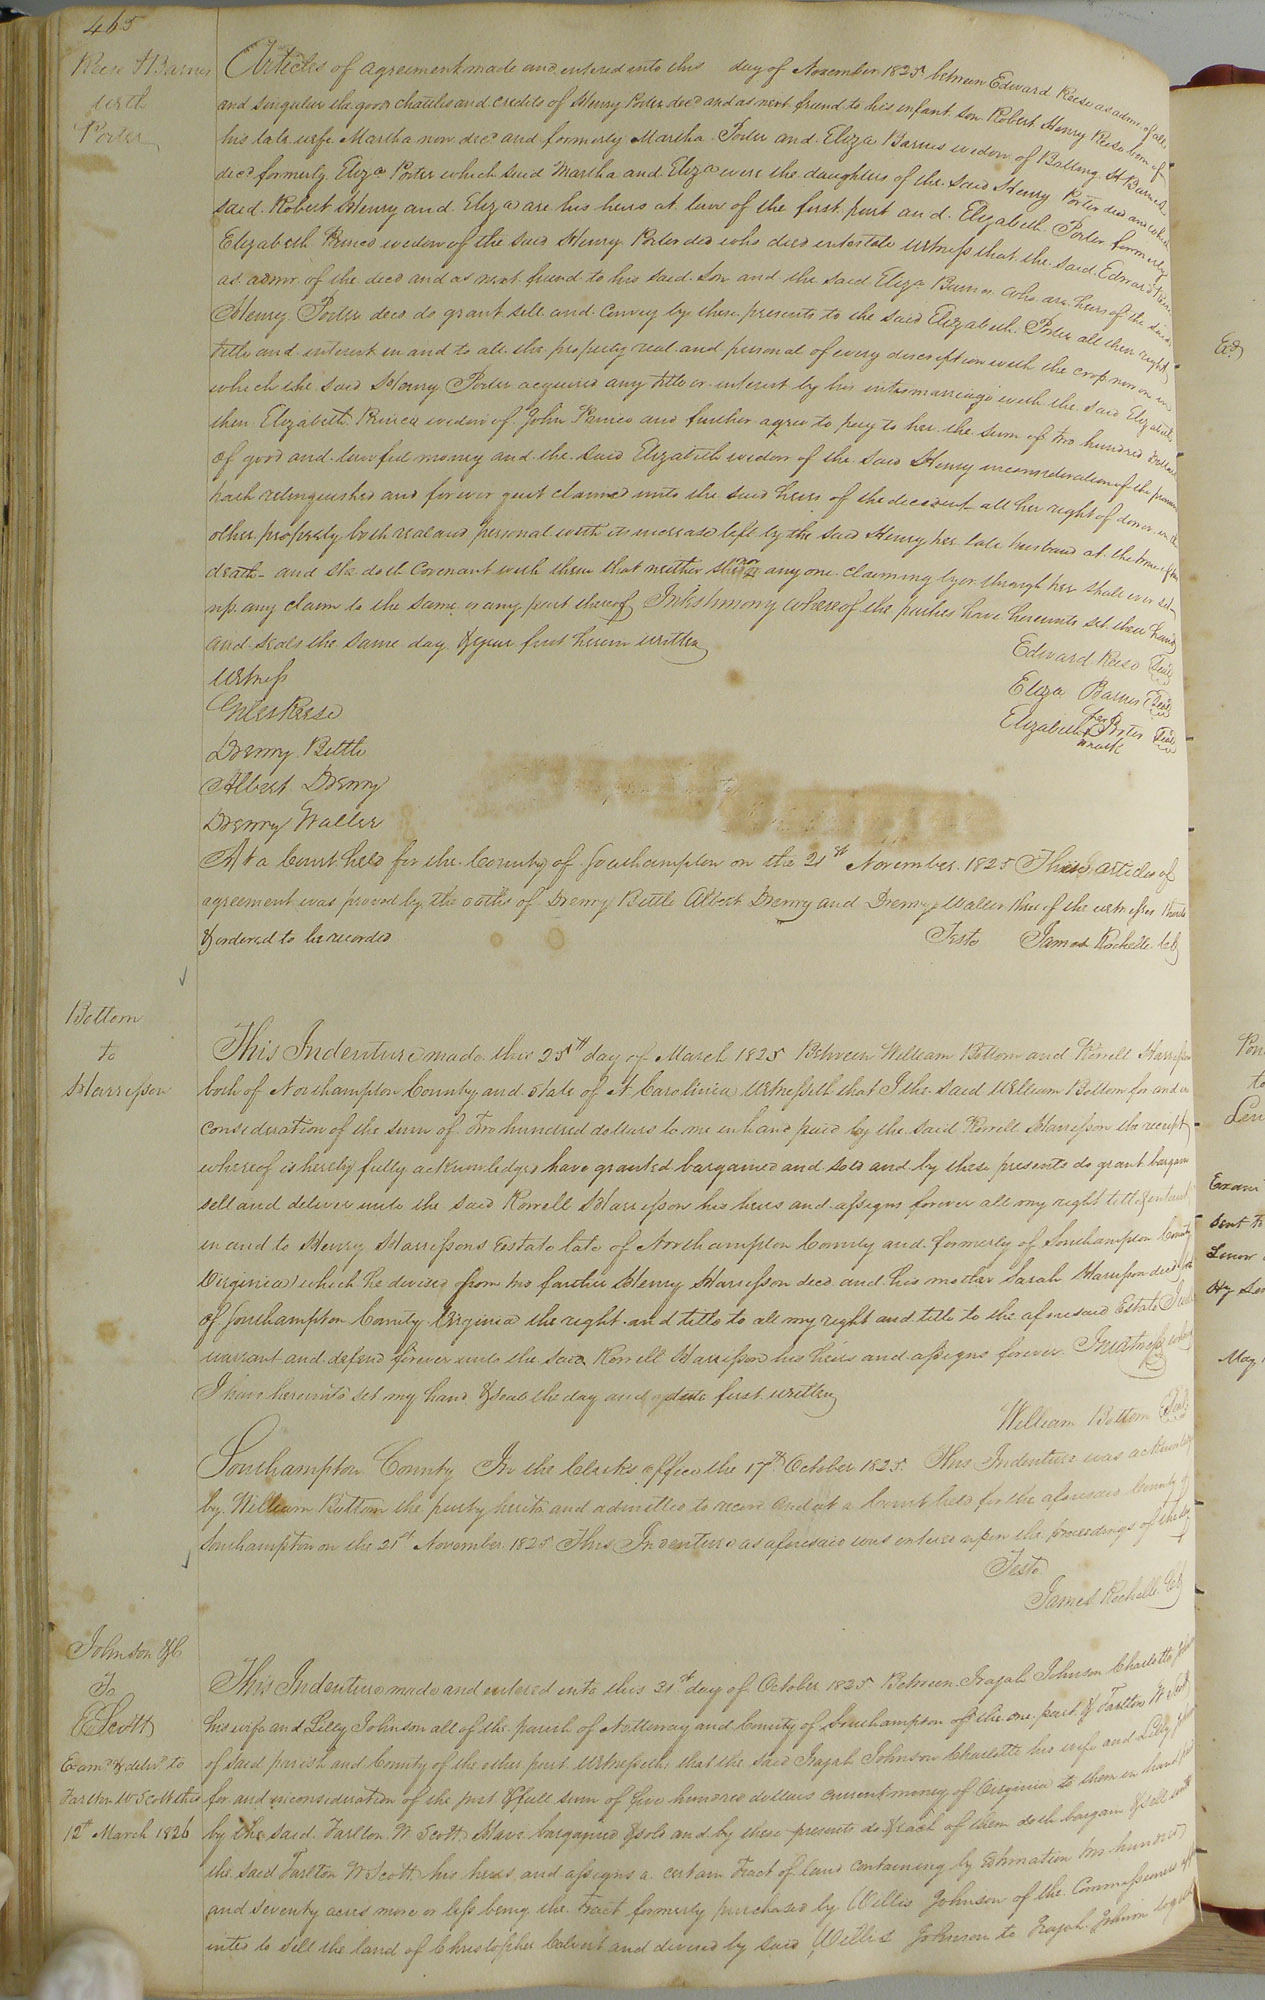 465
Reese & Barnes
with
Porter
Articles of agreement made and entered into this day of November 1825 between Edward Reese as admr. of all
and singular the goods chattles and credits of Henry Porter decd and as next friend to his infant son Robert Henry Reese born of
his late wife Martha now decd and formerly Martha Porter and Eliza Barnes widow of Bolling H Barnes
decd formerly Eliza Porter which said Martha and Eliza were the daughters of the said Henry Porter decd and which
said Robert Henry and Eliza are his heirs at law of the first part and Elizabeth Porter formerly
Elizabeth widow of the said Henry Porter decd who died intestate witness that the said Edward Reese
as admr of the decd and as next friend to his said son and the said Eliza Barnes who are heirs of the said
Henry Porter decd do grant sell and convey by these presents to the said Elizabeth Porter all their right
title and interest in and to all the property real and personal of every description with the crop now on
which the said Henry Porter acquired any title or interest by his intermarriage with the said Elizabeth
then Elizabeth widow of John and further agree to pay to her the sum of two hundred dollars
of good and lawful money and the said Elizabeth widow of the said Henry in consideration of the premises
hath relinquished and forever quit claimed unto the said heirs of the decedent all her right of dower in the
other property both real and personal with its increase left by the said Henry her late husband at the time of his
death and she doth covenant with them that neither she nor any one claiming by or through her shall ever set
up any claim to the same or any part thereof In testimony whereof the parties have hereunto set their hands
and seals the same day & year first herein written
Edward Reese Seal
Witness
Eliza Barnes Seal
Giles Reese
her
Elizabeth X Porter Seal
mark
Drewry Bittle
Albert Drewry
Drewry Waller
At a Court held for the County of Southampton on the 21st November 1825 These articles of
agreement was proved by the oaths of Drewry Bittle Albert Drewry and Drewry Waller three of the witnesses thereto
& ordered to be recorded
Teste James Rochelle Clk
Bottom
to
Harrisson
This Indenture made this 25th day of March 1825 Between William Bottom and Korrell Harrisson
both of Northampton County and State of N Carolinia Witnesseth that I the said William Bottom for and in
consideration of the sum of Two hundred dollars to me in hand paid by the said Korrell Harrisson the receipt
whereof is hereby fully acknowledged have granted bargained and sold and by these presents do grant bargain
sell and deliver unto the said Korrell Harrisson his heirs and assigns forever all my right title & interest
in and to Henry Harrissons Estate late of Northampton County and formerly of Southampton County
Virginia which he devised from his farther Henry Harrisson decd and his mother Sarah Harrisson decd
of Southampton County Virginia the right and title to all my right and title to the aforesaid Estate I will
warrant and defend forever unto the said Korrell Harrisson his heirs and assigns forever In witness whereof
I have hereunto set my hand & seal the day and date first written
William Bottom Seal
Southampton County In the Clerks office the 17th October 1825 This Indenture was acknowledged
by William Bottom the party hereto and admitted to record And at a Court held for the aforesaid County of
Southampton on the 21st November 1825 This Indenture as aforesaid was entered upon the proceedings of the day
Teste
James Rochelle Clk
Johnson &C
To
Scott
Examd & delivd to
Tarlton W Scott this
12th March 1826
This Indenture made and entered into this 31st day of October 1825 Between Irajah Johnson Charlotte Johnson
his wife and Lilly Johnson all of the parish of Nottoway and County of Southampton of the one part & Tarlton W Scott
of said parish and County of the other part Witnesseth that the said Irajah Johnson Charlotte his wife and Lilly Johnson
for and in consideration of the just & full sum of five hundred dollars current money of Virginia to them in hand paid
by the said Tarlton W Scott Have bargained & sold and by these presents do & each of them doth bargain & sell unto
the said Tarlton W Scott his heirs and assigns a certain Tract of land containing by estimation two hundred
and seventy acres more or less being the Tract formerly purchased by Willis Johnson of the Commissioners
inted to sell the land of Christopher Calvert and devised by said Willis Johnson to Irajah Johnson together